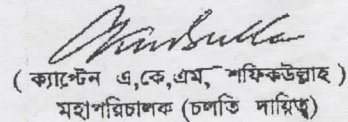 ( ক্যাপ্টেন এ,কে,এম, শফিকউল্লাহ )
মহাপরিচালক (চলতি দায়িত্ব)